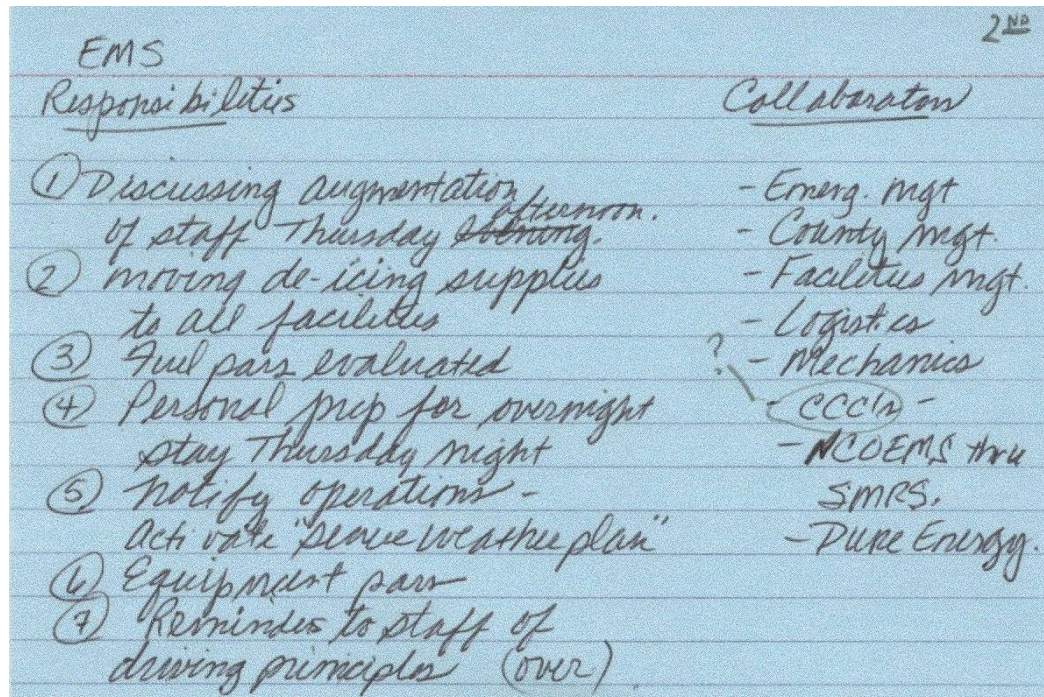 2ND
EMS
Responsibilities
Collaborators
① Discussing augmentation
of staff Thursday evening. afternoon.
② moving de-icing supplies
to all facilities
③ Fuel pars evaluated
④ Personal prep for overnight
stay Thursday night
⑤ Notify operations -
Activate "severe weather plan"
⑥ Equipment pars
⑦ Reminder to staff of
driving principles (over)
- Emerg. Mgt
- County Mgt.
- Facilities Mgt.
- Logistics
? - Mechanics
- CCC's -
- NCOEMS thru
SMRS.
- Duke Energy.